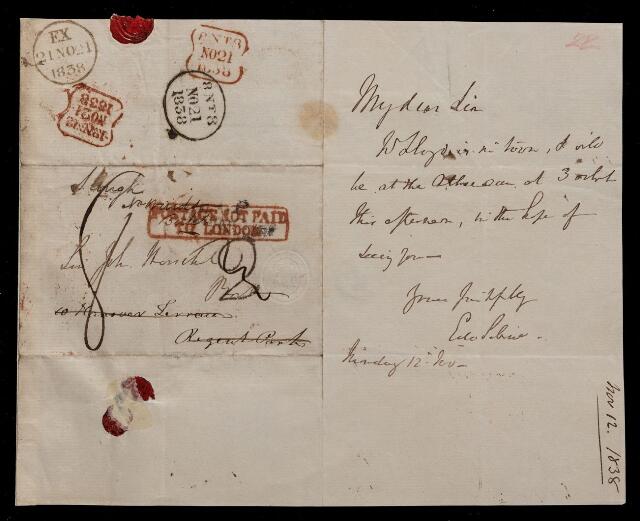 EX
21 NO 21
1838
8 NT 8
NO 21
1838
8 NT 8
NO 21
1838
NO 21
1838
Slough
POSTAGE NOT PAID
TO LONDON
Sir John Herschel
10 Hanover Terrace
Regent Park
8
22
My dear Sir
Lloyd is in town, & will
be at the Athenæum at 3 o'clock
this afternoon, in the hope of
seeing you—
Yours faithfully
Edw Sabine
Monday 12 Nov—
Nov 12. 1838